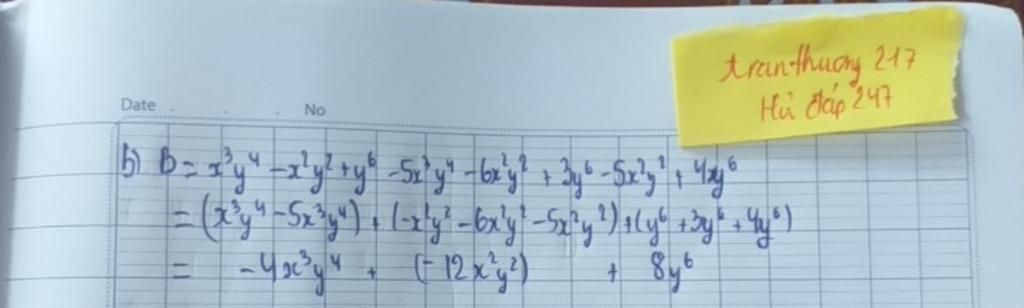 tranthuong 217
Hỏi đáp 247
Date No
b) B = x³y⁴ - x²y² + y⁶ - 5x³y⁴ - 6x²y² + 3y⁶ - 5x²y² + 4xy⁶
= (x³y⁴ - 5x³y⁴) + (-x²y² - 6x²y² - 5x²y²) + (y⁶ + 3y⁶ + 4y⁶)
= -4x³y⁴ + (-12x²y²) + 8y⁶